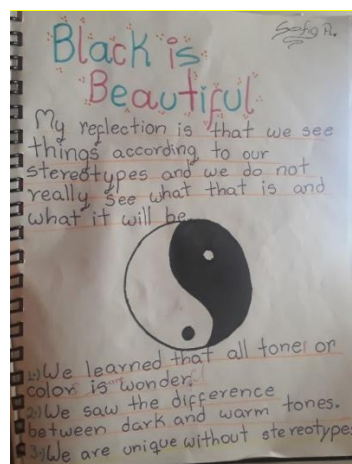 Sofia R.
Black is
Beautiful
My reflection is that we see
things according to our
stereotypes and we do not
really see what that is and
what it will be
1-) We learned that all tone or
color is wonder.
2-) We saw the difference
between dark and warm tones.
3-) We are unique without stereotypes